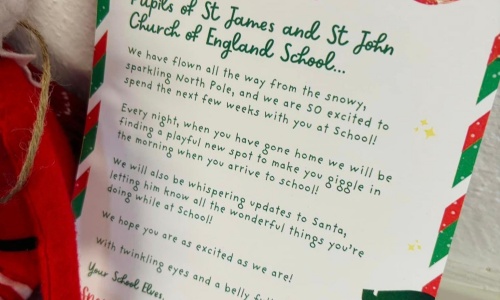 Pupils of St James and St John
Church of England School...
We have flown all the way from the snowy,
sparkling North Pole, and we are SO excited to
spend the next few weeks with you at School!
Every night, when you have gone home we will be
finding a playful new spot to make you giggle in
the morning when you arrive to school!
We will also be whispering updates to Santa,
letting him know all the wonderful things you're
doing while at School!
We hope you are as excited as we are!
with twinkling eyes and a belly
Your School Elves,